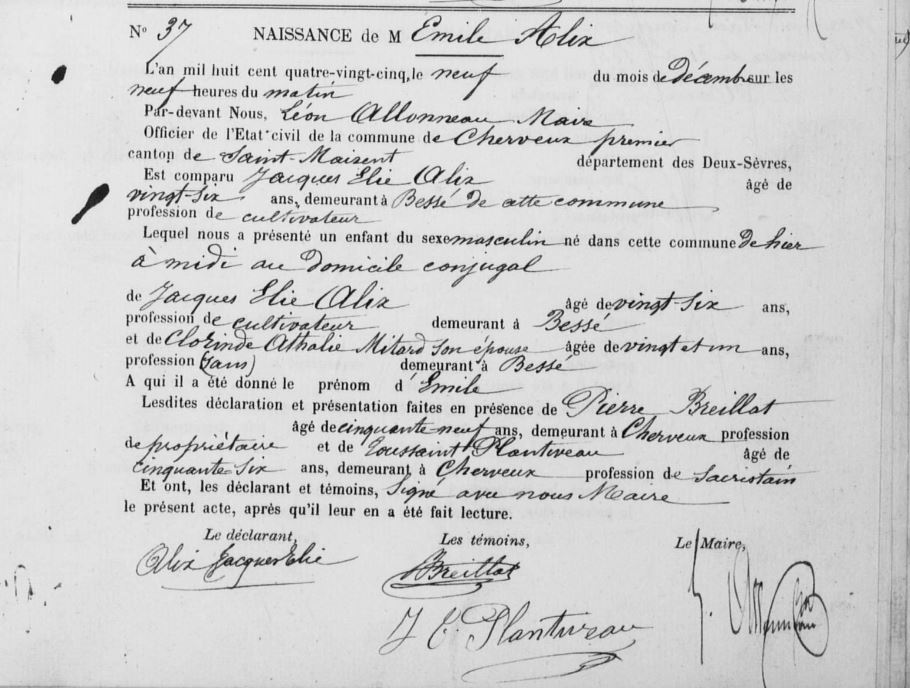 N° 37 NAISSANCE de M Emile Alix
L'an mil huit cent quatre-vingt-cinq, le neuf du mois de Décembre sur les
neuf heures du matin
Par-devant Nous, Léon Allonneau Maire
Officier de l'Etat civil de la commune de Cherveux premier
canton de Saint-Maixent département des Deux-Sèvres,
Est comparu Jacques Elie Alix âgé de
vingt-six ans, demeurant à Bessé de cette commune
profession de cultivateur
Lequel nous a présenté un enfant du sexe masculin né dans cette commune De hier
à midi au Domicile conjugal
de Jacques Elie Alix âgé de vingt-six ans,
profession de cultivateur demeurant à Bessé
et de Clorinde Athalie Mitard son épouse âgée de vingt et un ans,
profession (sans) demeurant à Bessé
A qui il a été donné le prénom d'Emile
Lesdites déclaration et présentation faites en présence de Pierre Breillat
âgé de cinquante neuf ans, demeurant à Cherveux profession
de propriétaire et de Toussaint Plantiveau âgé de
cinquante-six ans, demeurant à Cherveux profession de Sacristain
Et ont, les déclarant et témoins, Signé avec nous Maire
le présent acte, après qu'il leur en a été fait lecture.
Le déclarant, Les témoins, Le Maire,
Alix Jacques Elie Breillat
Plantiveau